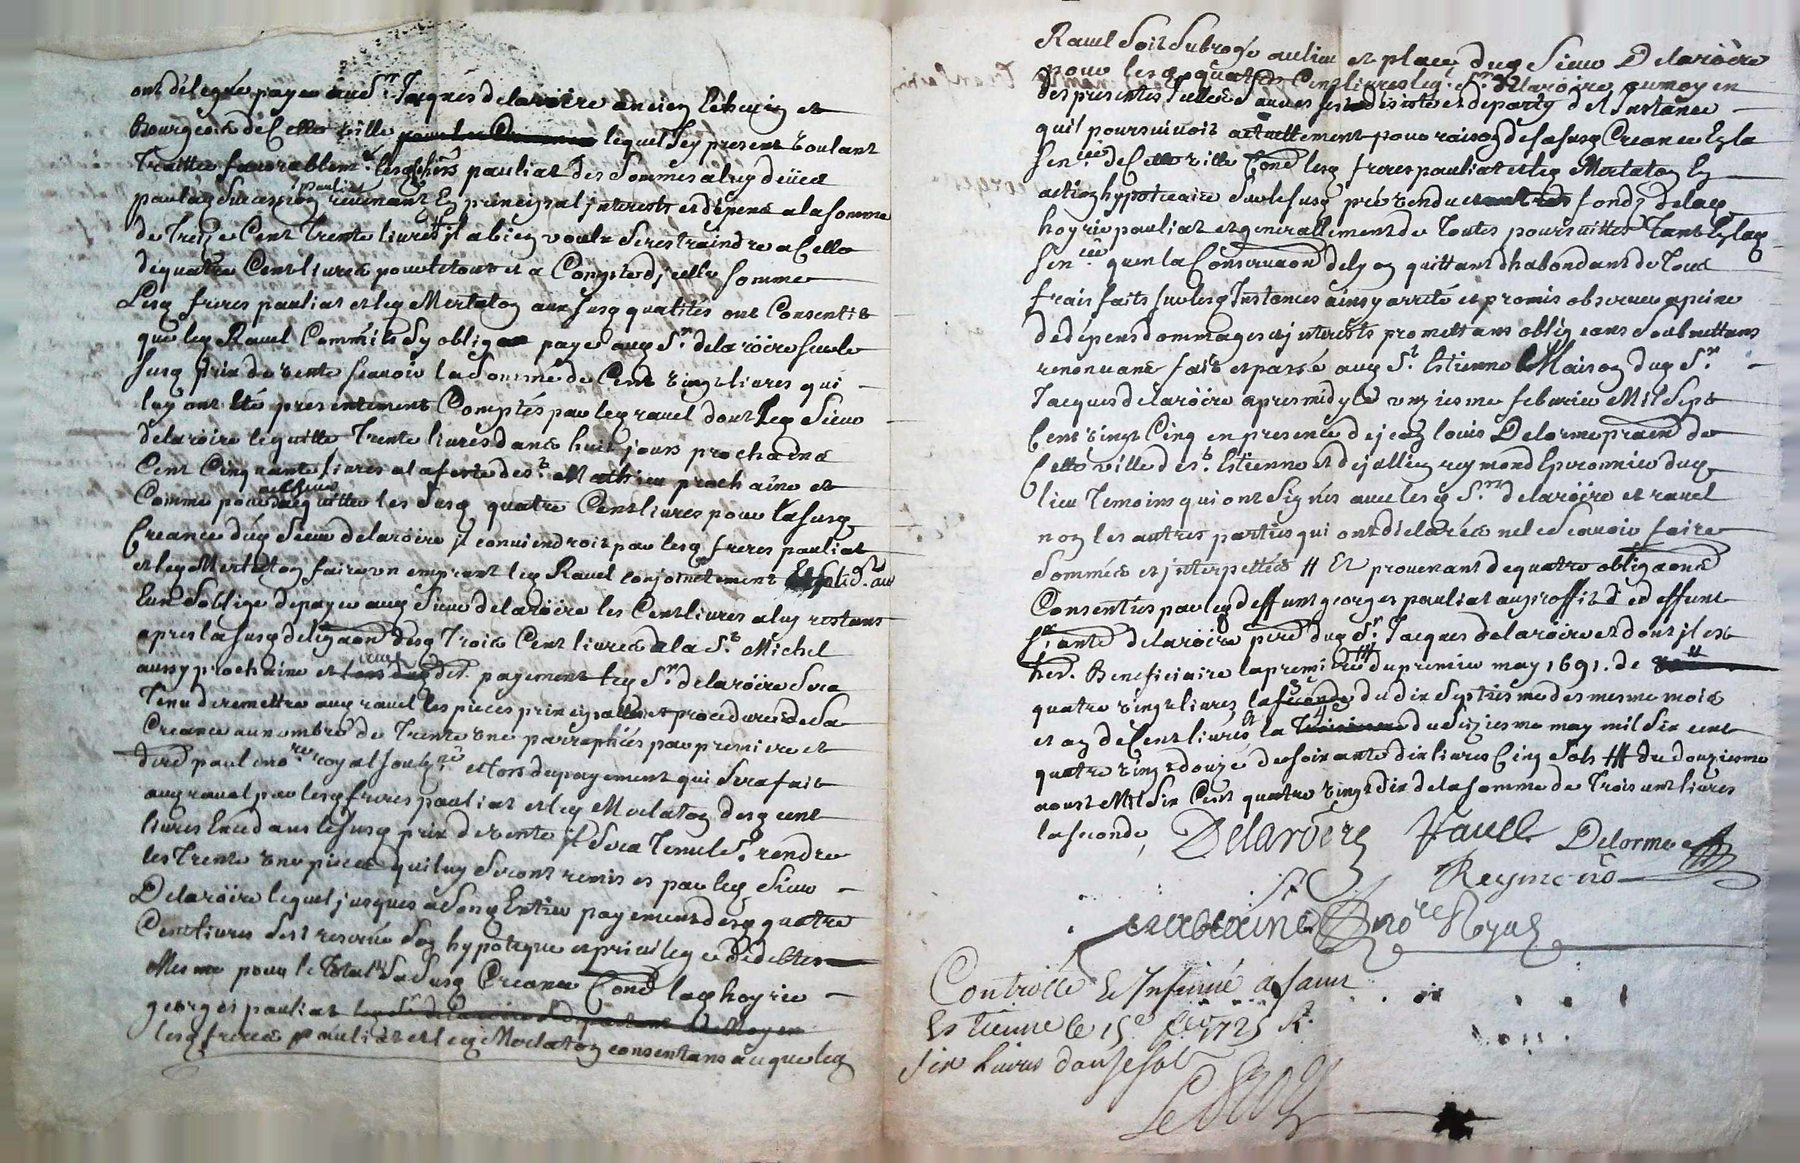 ont délégué payer au Sr Jacques delaroire ancien Echevin et
Bourgeois de Cette ville lequel Icy present voulant
Traitter favorablemt lesq pauliat des Sommes a luy deües
par laq Succession pauliat revenant En principal interests et dépens a la somme
de Treize Cent Trente livres il a bien voulu se restraindre a Celle
de quatre Cent livres pour le tout et a Compte d'icelle somme
Lesq freres pauliat et leq Merlaton aux susq qualités ont Consentis
que leq Ravel Commis Sy oblige payer auq Sr delaroire sur le
susq prix de vente scavoir la somme de Cent vingt livres qui
luy ont été presentement Comptés par leq ravel dont Leq Sieur
delaroire le quitte Trente livres dans huit jours prochains
Cent Cinquante livres a la feste de St Mathieu prochaine et
Comme pour acquitter les susq quatre Cent livres pour la susq
Creance duq Sieur delaroire il conviendroit par lesq freres pauliat
et leq Merlaton faire un emprunt leq Ravel conjointement
Eux s'oblige de payer auq Sieur delaroire les Cent livres a luy restans
apres la susq délégaon desq Trois Cent livres a la St Michel
aussy prochaine et payement leq Sr delaroire sera
Tenu de remettre auq ravel les pieces principalles et procedures de Sa
Creance au nombre de Trente une parraphées par premiere et
dere paul nore royal souszné et lors du payement qui sera fait
auq ravel par lesq freres pauliat et leq Merlaton desq cent
livres Excedans le susq prix de vente il sera Tenu de rendre
les Trente une pieces qui luy seront remis et par leq Sieur
Delaroire lequel jusques a son Entier payement desq quatre
Cent livres s'est reservé son hypoteque et privilege de debtes
Mesme pour le Total de Sa susq Creance Cone laq hoyrie
georges pauliat
lesq freres pauliat et leq Merlaton consentans a ce que leq
Ravel soit subrogé au lieu et place duq Sieur Delaroire
pour lesq quatre Cent livres leq Sr delaroire au moyen
des presentes s'est desisté et departy de l'instance
quil poursuivoit actuellement pour raison de sa susq Creance En la
Senée de Cette ville Cone lesq freres pauliat et leq Merlaton En
action hypotecaire sur le susq pré vendu fonds de laq
hoyrie pauliat et generallement de Toutes poursuittes Tant En laq
Senée quen la Conservaon de lyon quittant d'habondant de Tous
frais faits sur lesq Instances ainsy arreté et promis observer a peine
de dépens dommages et interests promettans obligeans Soubmettans
renonceans fait et passé auq St Estienne Maison duq Sr
Jacques delaroire apres midy le unziesme febvrier Mil Sept
Cent vingt Cinq en presence de jean louis Delorme prain de
Cette ville de St Estienne et de jullien reymond Eperonnier duq
lieu Temoins qui ont Signés avec lesq Srs delaroire et ravel
non les autres parties qui ont déclarées ne le Scavoir faire
Sommées et interpellées # Et provenant de quatre obligaons
Consenties par leq deffunt georges pauliat au proffit de deffunt
Sr ante delaroire pere duq Sr Jacques delaroire et dont il est
her. Beneficiaire la premiere du premier may 1691. de
quatre vingt livres la seconde du dix septiesme des mesme mois
et an de Cent livres la du seiziesme may mil six cent
quatre vingt douze de soixante dix livres Cinq sols ## du douziesme
aoust Mil Six Cent quatre vingt dix de la somme de Trois cent livres
la seconde,
Delaroere Ravel Delorme
Reymond
nore Royal
Controllé Et Insinué a Saint
Estienne le 15e fer 1725 R.
six livres douse sols